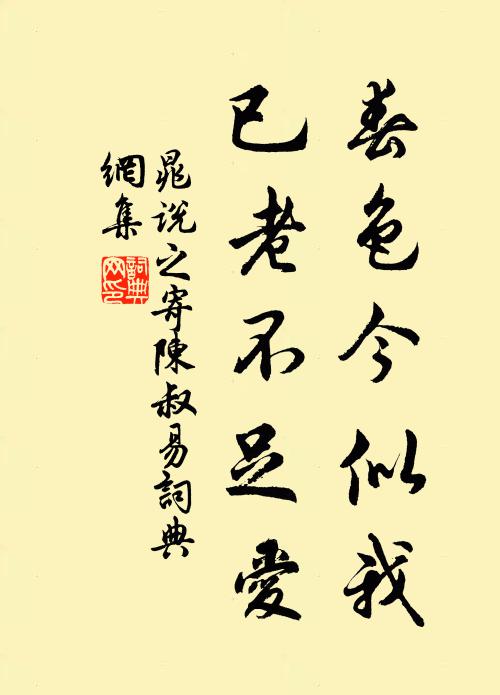 春色今似我
已老不足愛
晁說之寄陳叔易詞典
網集
詞典網印